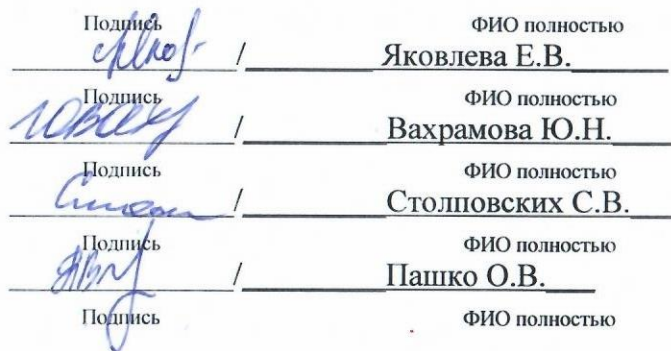 Подпись ФИО полностью
/ Яковлева Е.В.
Подпись ФИО полностью
/ Вахрамова Ю.Н.
Подпись ФИО полностью
/ Столповских С.В.
Подпись ФИО полностью
/ Пашко О.В.
Подпись ФИО полностью